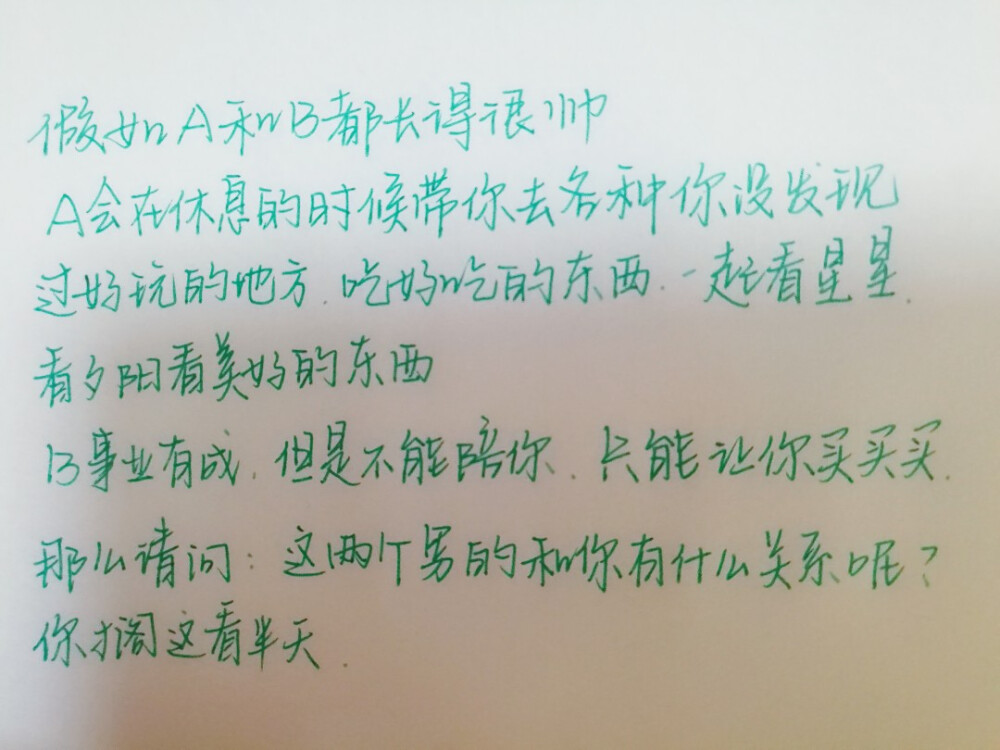 假如A和B都长得很帅
A会在休息的时候带你去各种你没发现
过好玩的地方.吃好吃的东西.一起看星星.
看夕阳看美好的东西
B事业有成.但是不能陪你.只能让你买买买.
那么请问:这两个男的和你有什么关系呢?
你搁这看半天.